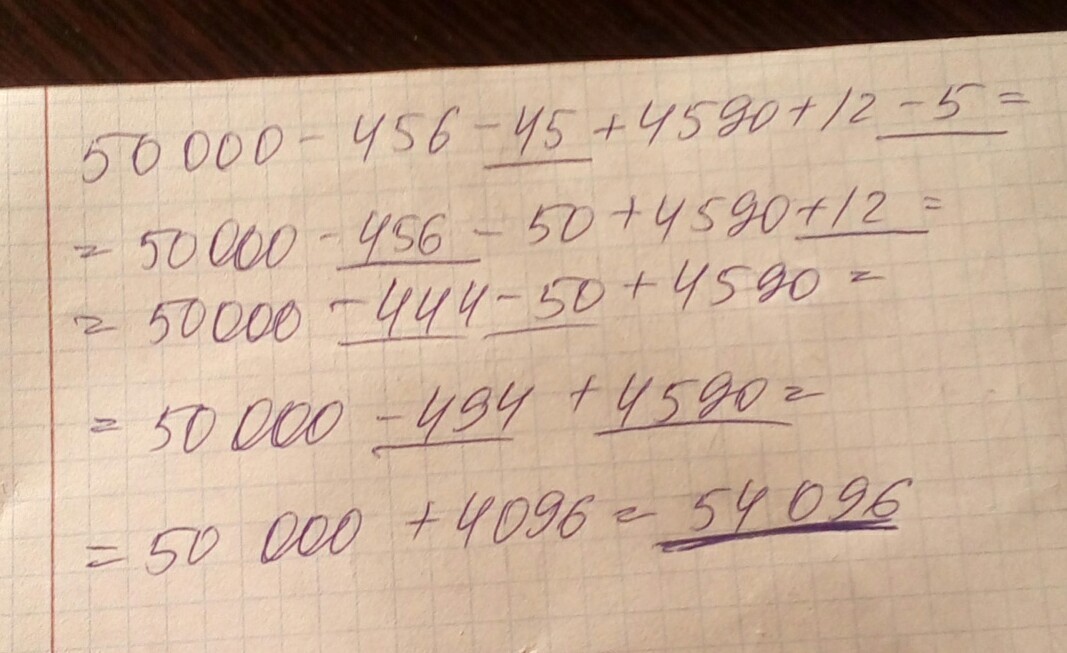 50 000 - 456 - 45 + 4590 + 12 - 5 =
= 50000 - 456 - 50 + 4590 + 12 =
= 50000 - 444 - 50 + 4590 =
= 50 000 - 494 + 4590 =
= 50 000 + 4096 = 54 096